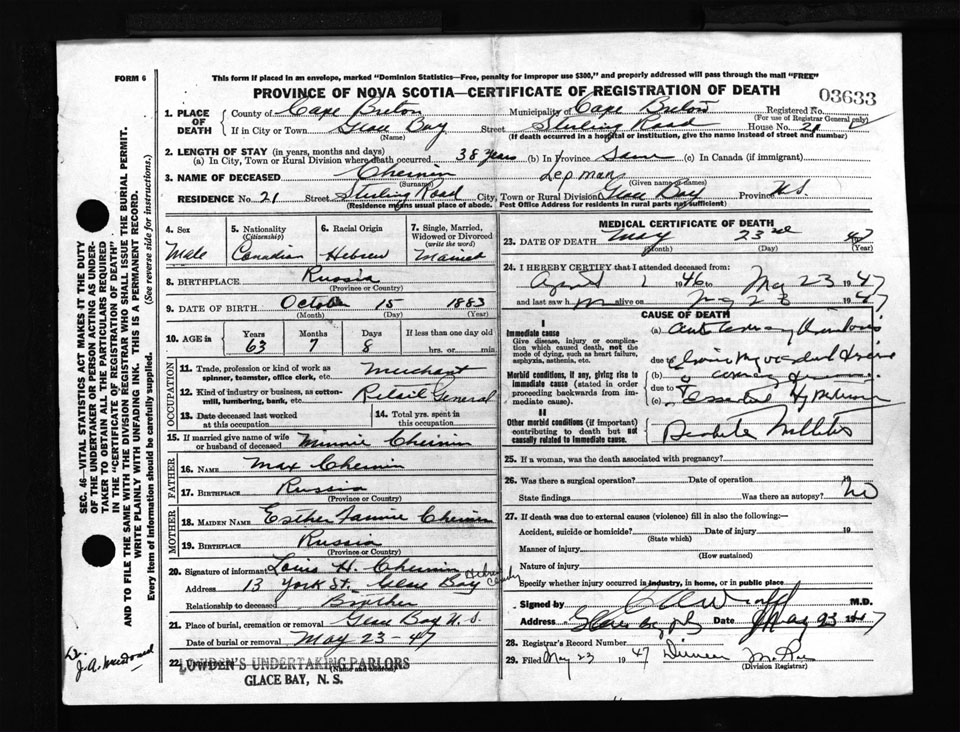 FORM 6
This form if placed in an envelope, marked "Dominion Statistics—Free, penalty for improper use $300," and properly addressed will pass through the mail "FREE"
PROVINCE OF NOVA SCOTIA—CERTIFICATE OF REGISTRATION OF DEATH
03633
1. PLACE OF DEATH
County of Cape Breton Municipality of Cape Breton Registered No.
(For use of Registrar General only)
If in City or Town Glace Bay Street Sterling Road House No. 21
(Name) (If death occurred in a hospital or institution, give the name instead of street and number)
2. LENGTH OF STAY (in years, months and days)
(a) In City, Town or Rural Division where death occurred 38 years (b) In Province Same (c) In Canada (if immigrant)
3. NAME OF DECEASED Chernin Lepman
(Surname) (Given name or names)
RESIDENCE No. 21 Street Sterling Road City, Town or Rural Division Glace Bay Province N.S.
(Residence means usual place of abode. Post Office Address for residents in rural parts not sufficient)
4. Sex
Male
5. Nationality
(Citizenship)
Canadian
6. Racial Origin
Hebrew
7. Single, Married, Widowed or Divorced
(write the word)
Married
8. BIRTHPLACE Russia
(Province or Country)
9. DATE OF BIRTH October 15 1883
(Month) (Day) (Year)
10. AGE in
Years Months Days If less than one day old
63 7 8 hrs. or min.
OCCUPATION
11. Trade, profession or kind of work as spinner, teamster, office clerk, etc. Merchant
12. Kind of industry or business, as cotton-mill, lumbering, bank, etc. Retail General
13. Date deceased last worked at this occupation
14. Total yrs. spent in this occupation
15. If married give name of wife or husband of deceased Minnie Chernin
FATHER
16. NAME Max Chernin
17. BIRTHPLACE Russia
(Province or Country)
MOTHER
18. MAIDEN NAME Esther Fannie Chernin
19. BIRTHPLACE Russia
(Province or Country)
20. Signature of informant Louis H. Chernin
Address 13 York St. Glace Bay
Relationship to deceased Brother
21. Place of burial, cremation or removal Glace Bay N.S.
Hebrew
Date of burial or removal May 23-47
22. LOWDEN'S UNDERTAKING PARLORS
GLACE BAY, N. S.
MEDICAL CERTIFICATE OF DEATH
23. DATE OF DEATH May 23rd 47
(Month) (Day) (Year)
24. I HEREBY CERTIFY that I attended deceased from:
1 1946 to May 23 1947
and last saw him alive on May 23 1947
CAUSE OF DEATH
I
Immediate cause
Give disease, injury or complication which caused death, not the mode of dying, such as heart failure, asphyxia, asthenia, etc.
(a)
due to
Morbid conditions, if any, giving rise to immediate cause (stated in order proceeding backwards from immediate cause).
(b)
due to
(c) Essential Hypertension
II
Other morbid conditions (if important) contributing to death but not causally related to immediate cause.
Diabetes Mellitus
25. If a woman, was the death associated with pregnancy?
26. Was there a surgical operation? Date of operation 19
State findings Was there an autopsy? No
27. If death was due to external causes (violence) fill in also the following:—
Accident, suicide or homicide? Date of injury 19
(State which)
Manner of injury
(How sustained)
Nature of injury
Specify whether injury occurred in industry, in home, or in public place
Signed by M.D.
Address Glace Bay Date May 23 1947
28. Registrar's Record Number
29. Filed May 23 1947
(Division Registrar)
SEC. 46—VITAL STATISTICS ACT MAKES IT THE DUTY
OF THE UNDERTAKER OR PERSON ACTING AS UNDER-
TAKER TO OBTAIN ALL THE PARTICULARS REQUIRED
IN THE "CERTIFICATE OF REGISTRATION OF DEATH"
AND TO FILE THE SAME WITH THE DIVISION REGISTRAR WHO SHALL ISSUE THE BURIAL PERMIT.
WRITE PLAINLY WITH UNFADING INK. THIS IS A PERMANENT RECORD.
Every item of information should be carefully supplied. (See reverse side for instructions.)
Dr.
J.A. McDonald